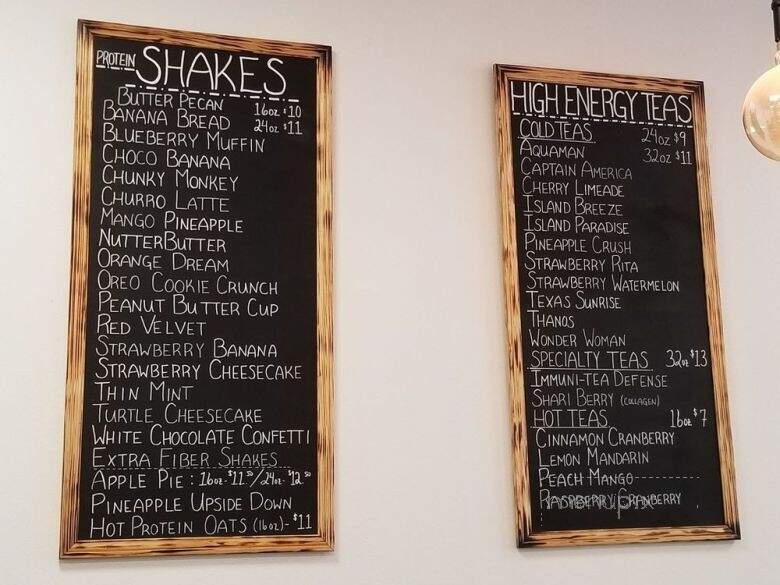 PROTEIN SHAKES
BUTTER PECAN 16oz $10
BANANA BREAD 24oz $11
BLUEBERRY MUFFIN
CHOCO BANANA
CHUNKY MONKEY
CHURRO LATTE
MANGO PINEAPPLE
NUTTERBUTTER
ORANGE DREAM
OREO COOKIE CRUNCH
PEANUT BUTTER CUP
RED VELVET
STRAWBERRY BANANA
STRAWBERRY CHEESECAKE
THIN MINT
TURTLE CHEESECAKE
WHITE CHOCOLATE CONFETTI
EXTRA FIBER SHAKES
APPLE PIE: 16oz-$11.50/24oz-$12.50
PINEAPPLE UPSIDE DOWN
HOT PROTEIN OATS (16oz)-$11
HIGH ENERGY TEAS
COLD TEAS 24oz $9
AQUAMAN 32oz $11
CAPTAIN AMERICA
CHERRY LIMEADE
ISLAND BREEZE
ISLAND PARADISE
PINEAPPLE CRUSH
STRAWBERRY RITA
STRAWBERRY WATERMELON
TEXAS SUNRISE
THANOS
WONDER WOMAN
SPECIALTY TEAS 32oz $13
IMMUNI-TEA DEFENSE
SHARI BERRY (COLLAGEN)
HOT TEAS 16oz $7
CINNAMON CRANBERRY
LEMON MANDARIN
PEACH MANGO
RASPBERRY CRANBERRY